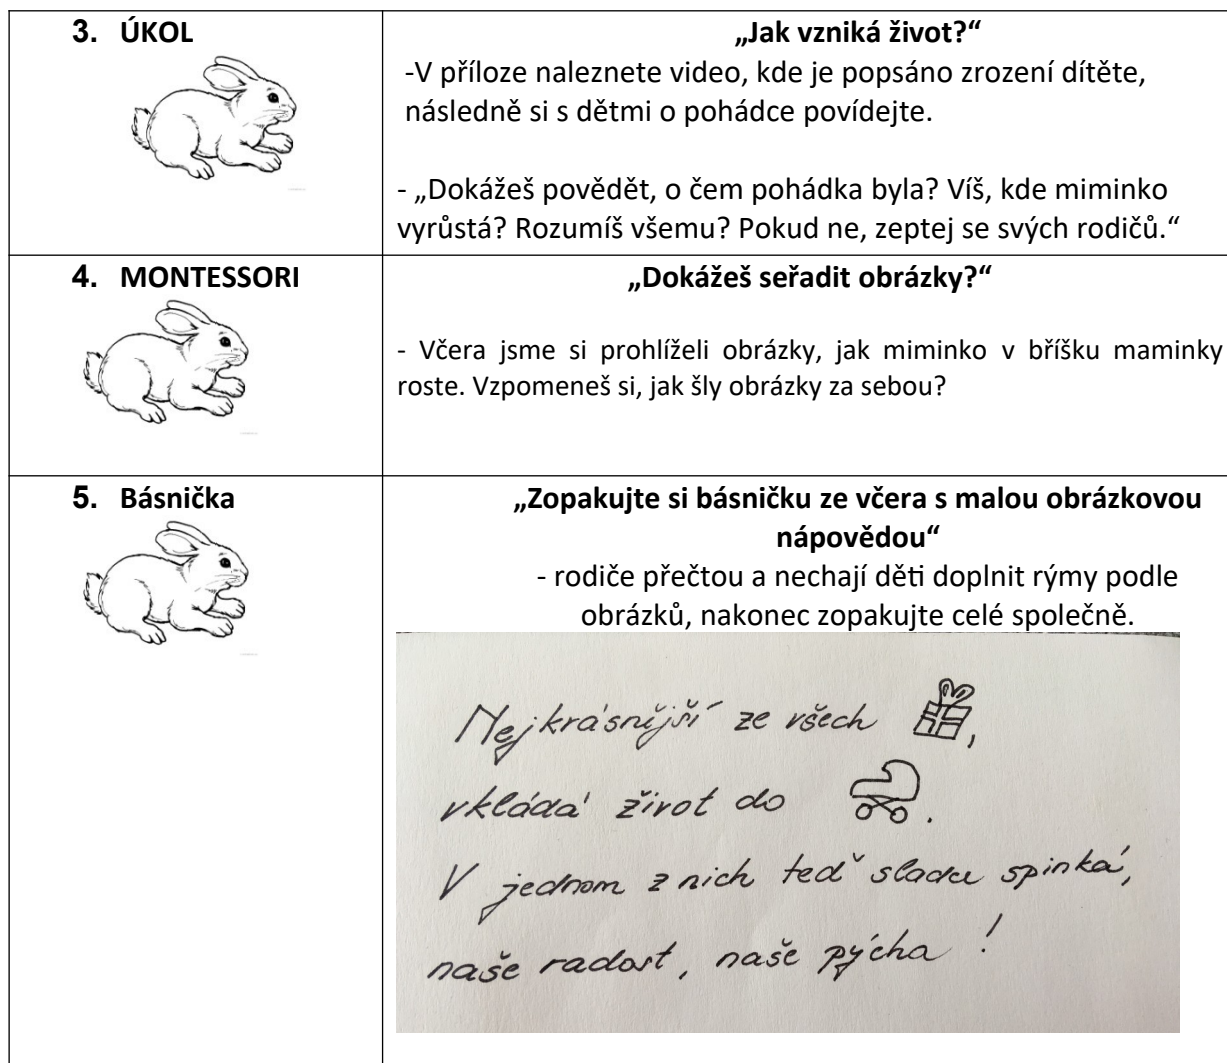 3. ÚKOL
„Jak vzniká život?“
-V příloze naleznete video, kde je popsáno zrození dítěte,
následně si s dětmi o pohádce povídejte.
- „Dokážeš povědět, o čem pohádka byla? Víš, kde miminko
vyrůstá? Rozumíš všemu? Pokud ne, zeptej se svých rodičů.“
4. MONTESSORI
„Dokážeš seřadit obrázky?“
- Včera jsme si prohlíželi obrázky, jak miminko v bříšku maminky
roste. Vzpomeneš si, jak šly obrázky za sebou?
5. Básnička
„Zopakujte si básničku ze včera s malou obrázkovou
nápovědou“
- rodiče přečtou a nechají děti doplnit rýmy podle
obrázků, nakonec zopakujte celé společně.
Nejkrásnější ze všech ,
vkládá život do .
V jednom z nich teď sladce spinká,
naše radost, naše pýcha !